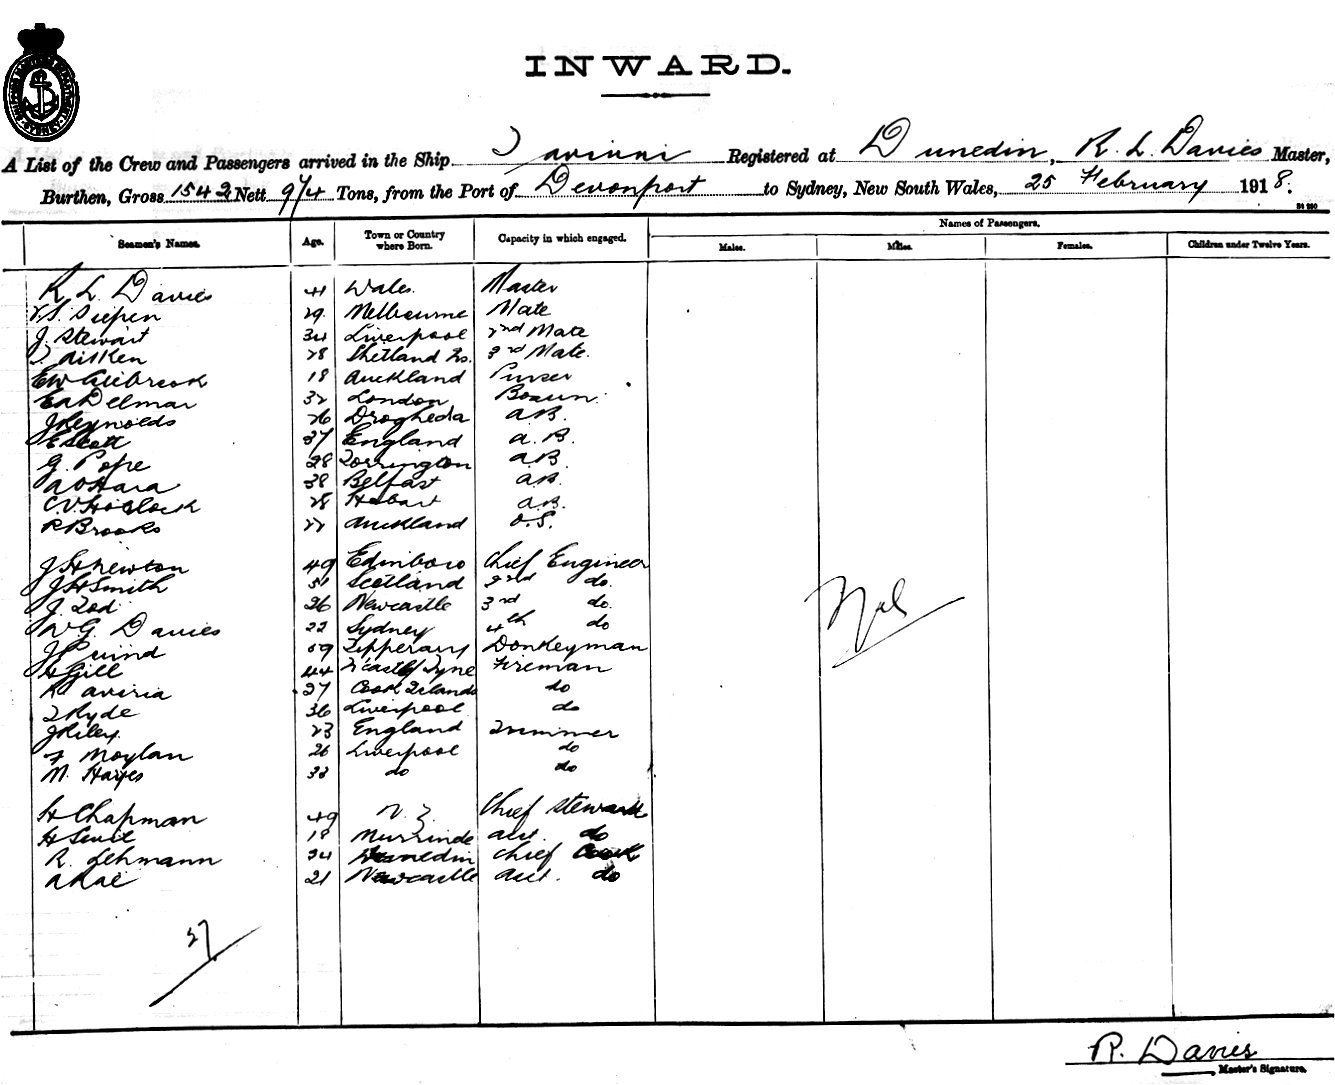 INWARD.
A List of the Crew and Passengers arrived in the Ship Tavinni Registered at Dunedin, R. L. Davies Master,
Burthen, Gross 1542 Nett 914 Tons, from the Port of Devonport to Sydney, New South Wales, 25 February 1918.
Seamen's Names. Age. Town or Country where Born. Capacity in which engaged. Names of Passengers.
Males. Males. Females. Children under Twelve Years.
R L Davies 41 Wales. Master
29. Melbourne Mate
J. Stewart 34 Liverpool 2nd Mate
Aitken 28 Shetland Is. 3rd Mate.
EW 18 Auckland Purser
EA Delmar 32 London Bosun.
J Reynolds 26 Drogheda A.B.
E Scott 37 England A.B.
G. Pope 28 Torrington A.B.
A O'Hara 38 Belfast A.B.
C.V. 28 Hobart A.B.
R Brooks 22 Auckland O.S.
J H Newton 49 Edinboro Chief Engineer
J H Smith 31 Scotland 2nd do.
J. Tod 26 Newcastle 3rd do.
W G Davies 22 Sydney 4th do
J 59 Tipperary Donkeyman
H Gill 44 N'castle/Tyne Fireman
27 Cook Islands do
T Ryde 36 Liverpool do
J Riley. 23 England Trimmer
F Moylan 26 Liverpool do
M. Hayes 32 do do
Nil
H Chapman 49 N.Z Chief Steward
H 18 asst. do
R. Lehmann 24 Dunedin Chief Cook
A Rae 21 Newcastle asst. do
27
R. Davies
Master's Signature.